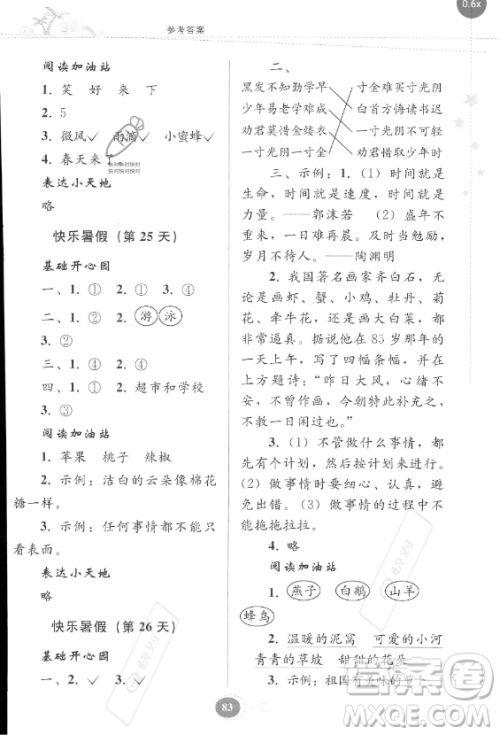 0.6x
参考答案
阅读加油站
1. 笑 好 来 下
2. 5
3. 微风✓ 雨滴✓ 小蜜蜂✓
4. 春天来了
表达小天地
略
快乐暑假（第 25 天）
基础开心园
一、1. ① 2. ① 3. ①
二、1. ② 2. 游 泳
3. ②
三、1. ② 2. ②
四、1. ① 2. 超市和学校
3. ③
阅读加油站
1. 苹果 桃子 辣椒
2. 示例：洁白的云朵像棉花
糖一样。
3. 示例：任何事情都不能只
看表面。
表达小天地
略
快乐暑假（第 26 天）
基础开心园
一、1. 2. ✓ 3. ✓
二、
黑发不知勤学早 一寸金难买寸光阴
少年易老学难成 白首方悔读书迟
劝君莫惜金缕衣 一寸光阴不可轻
一寸光阴一寸金 劝君惜取少年时
三、示例：1.（1）时间就是
生命，时间就是速度，时间就是
力量。——郭沫若 （2）盛年不
重来，一日难再晨。及时当勉励，
岁月不待人。——陶渊明
2. 我国著名画家齐白石，无
论是画虾、蟹、小鸡、牡丹、菊
花、牵牛花，还是画大白菜，都
非常逼真。他在 85 岁那年的
一天上午，写了四幅条幅，并在
上方题诗：“昨日大风，心绪不
安，不曾作画，今朝特此补充之，
不教一日闲过也。”
3.（1）不管做什么事情，都
先有个计划，然后按计划执行。
（2）做事情时要细心、认真，避
免出错。（3）做事情的过程中不
能拖拖拉拉。
4. 略
阅读加油站
1. 燕子 白鹅 山羊
蜂鸟
2. 温暖的泥窝 可爱的小河
青青的草坡 甜甜的花朵
3. 示例：祖国
83
答案圈
MXQE.COM